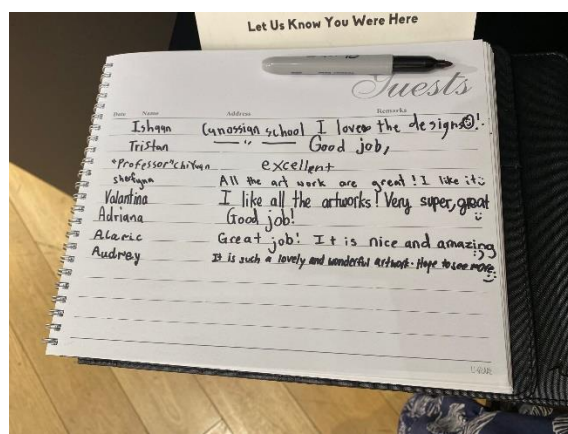 Let Us Know You Were Here
Guests
Date Name Address Remarks
Ishaan Canossian school I love the designs!
Tristan — " — Good job,
"Professor" chiYuan excellent
All the art work are great! I like it
Valantina I like all the artworks! Very super, great
Adriana Good job!
Alaric Great job! It is nice and amazing
Audrey It is such a lovely and wonderful artwork. Hope to see more